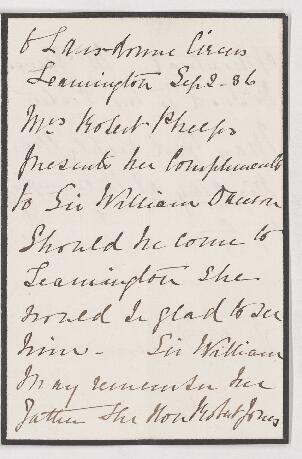 6 Lansdowne Circus
Leamington Sep 2 - 86
Mrs Robert Phelps
presents her Compliments
to Sir William Dawson
Should he come to
Leamington she
would be glad to see
him - Sir William
may remember her
father The Hon Robert Jones